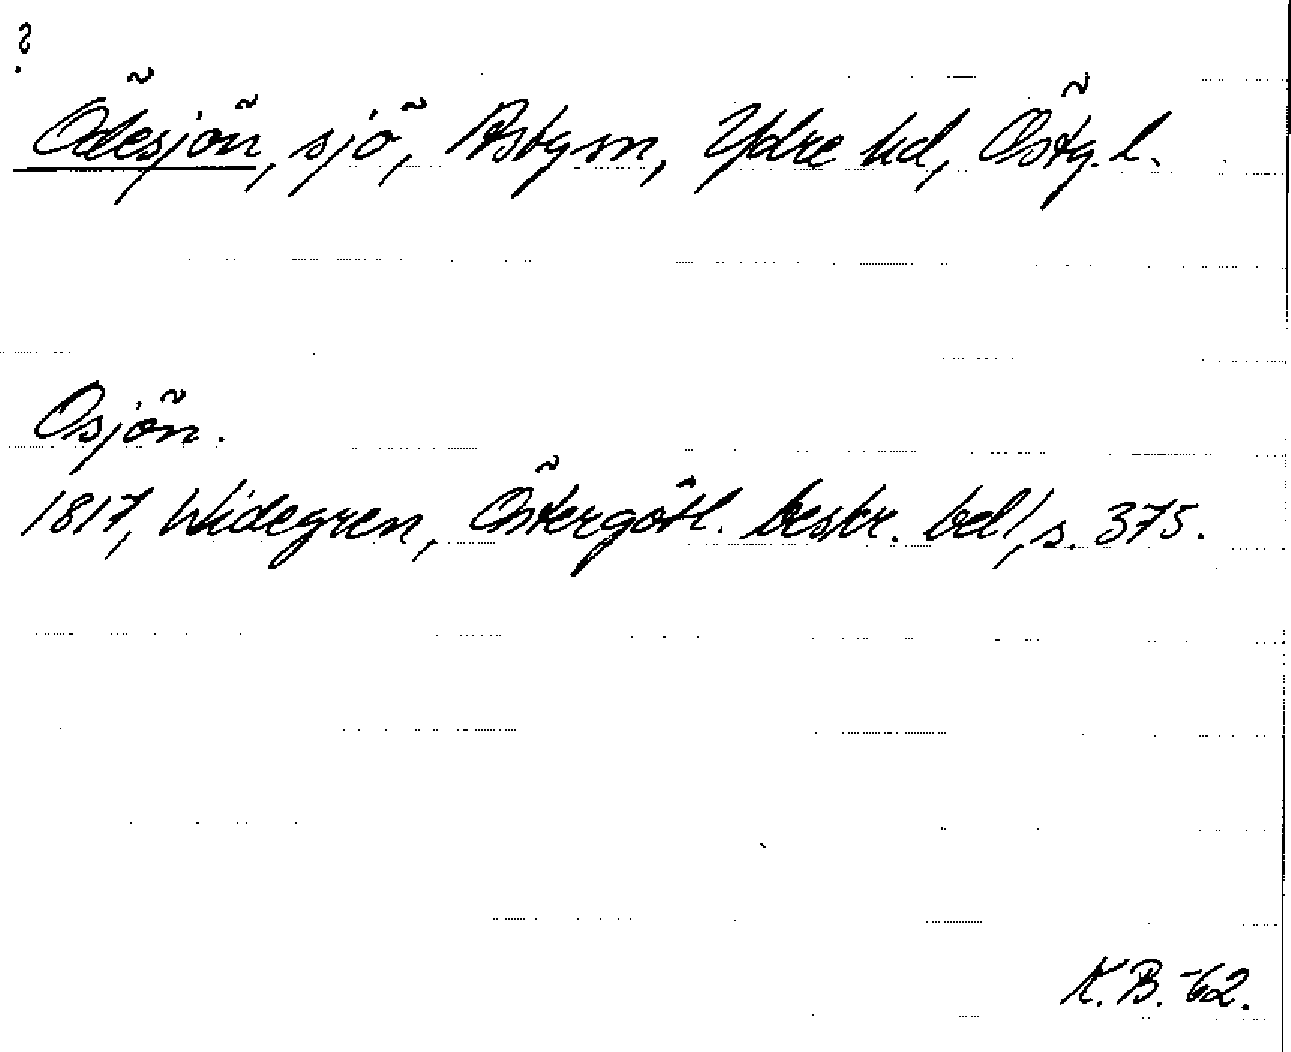 ?
Ödesjön, sjö, Asby sn, Ydre hd, Östg. l.
Osjön.
1817, Widegren, Östergötl. beskr. bd 1, s. 375.
K. B. -62.